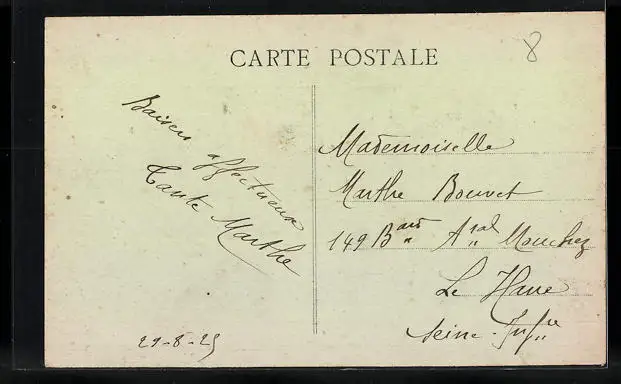 CARTE POSTALE
8
Baisers affectueux
Tante Marthe
29-8-25
Mademoiselle
Marthe Bouvet
149 Bard Aral Mouchez
Le Havre
Seine-Infre